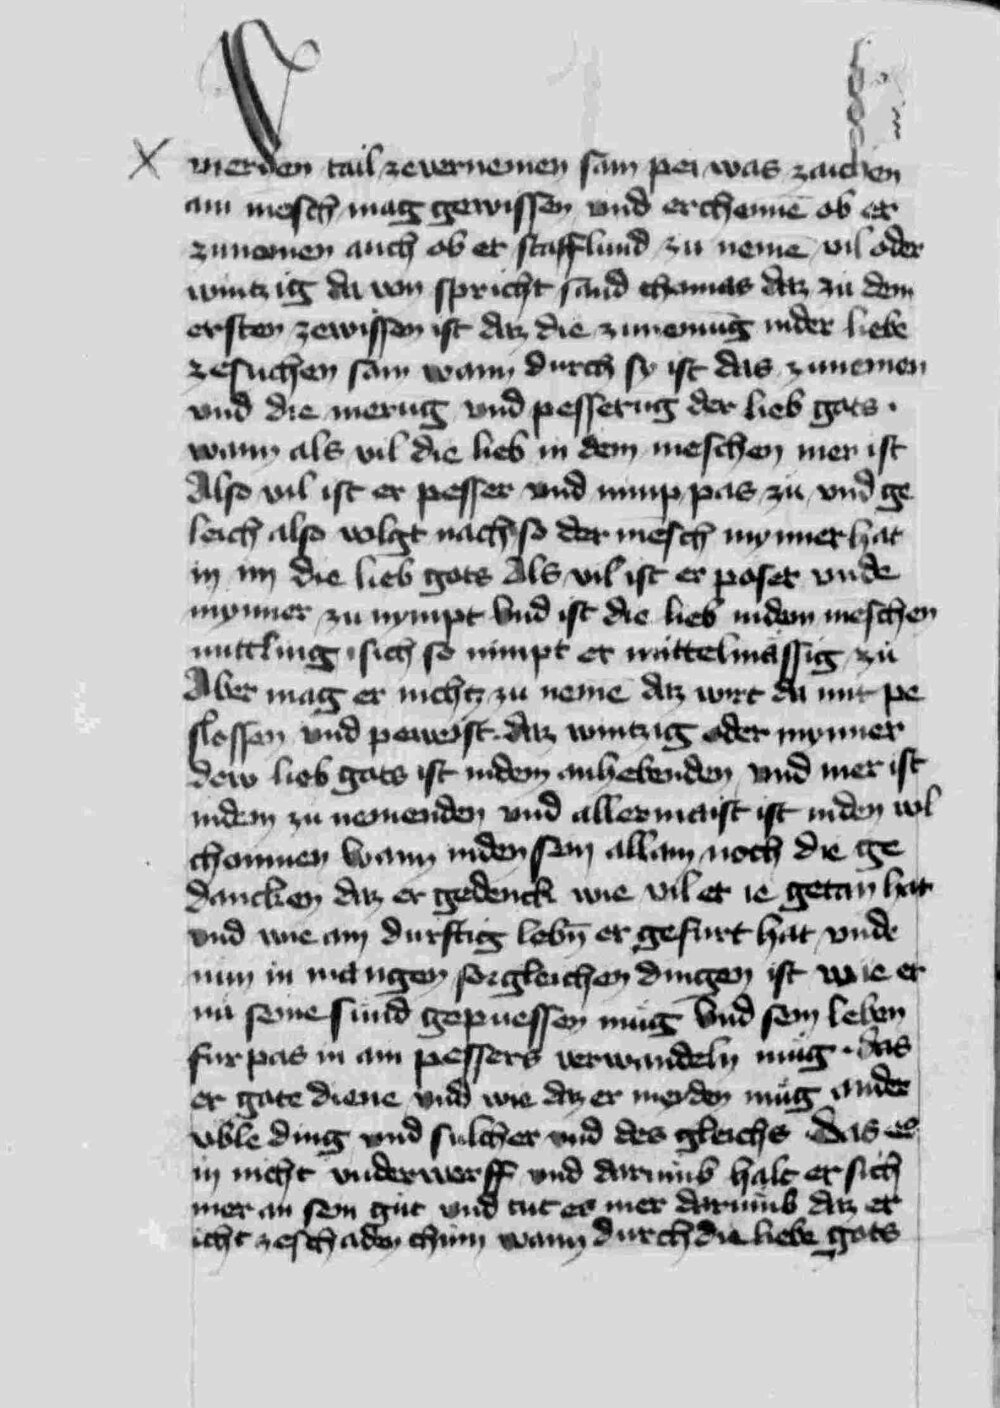 merden tail ze vernemen sam pei was zaichen
ain mesch mag gewissen vnd erchenne ob er
zunemen auch ob er stafflund zu neme vil oder
wintzig da von spricht sand thomas daz zu dem
ersten ze wissen ist daz die zunemug in der liebe
ze suchen sam wann durch sy ist das zunemen
vnd die merug vnd pesserug der lieb gots .
wann als vil die lieb in dem meschen mer ist
Also vil ist er pesser vnd nimp pas zu vnd ge
leich also volgt nach so der mesch mynner hat
in im die lieb gots Als vil ist er poser vnde
mynner zu nympt Vnd ist die lieb in dem meschen
mittling sich so nimpt er mittelmässig zu
Aber mag er nichtz zu neme daz wirt da mit pe
slossen vnd peweist daz wintzig oder mynner
dew lieb gots ist in dem anhebenden vnd mer ist
in dem zu nemenden vnd aller maist ist in den vol
chomnen Wann in den sein allain noch die ge
dancken daz er gedenck wie vil er ie getan hat
vnd wie ain durftig lebn er gefurt hat vnde
nun in mangen sorgleichen dingen ist wie er
nu seine sund gepuessen mug Vnd sein leben
fur pas in ain pessers verwandeln mug . das
er gote diene vnd wie daz er meyden mug ander
vble ding vnd sulcher vnd des gleichs . Das es
in nicht vnderwerff vnd darumb halt er sich
mer an sein gut vnd tut es mer darumb daz er
icht ze schaden chum wann durch die liebe gots